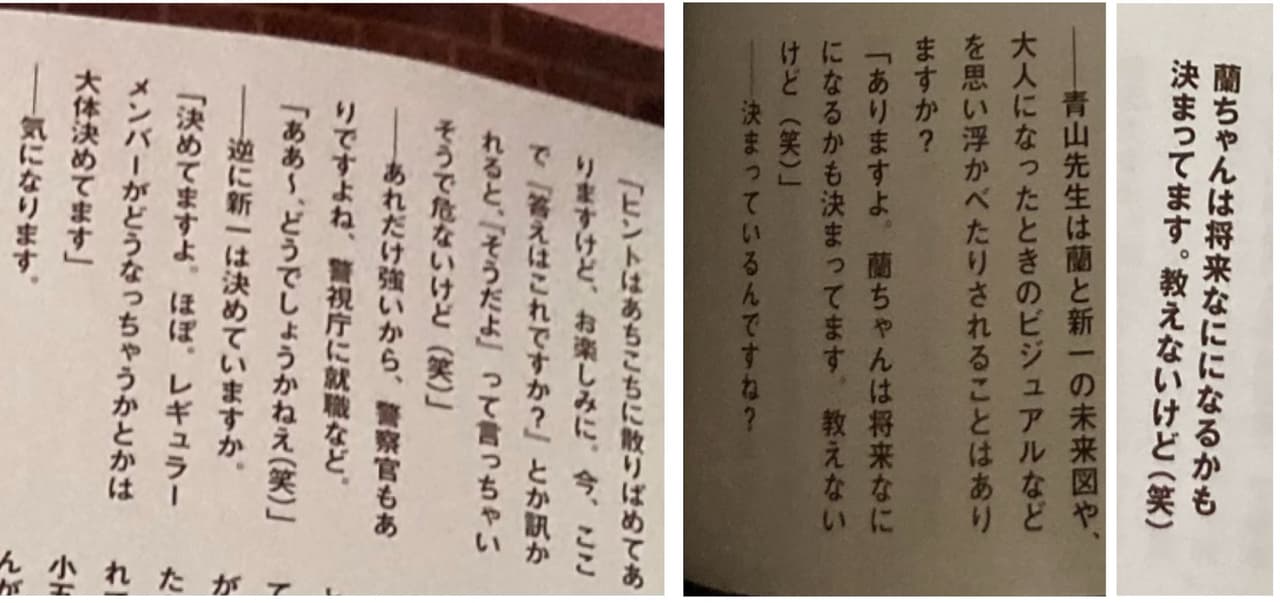 蘭ちゃんは将来なにになるかも
決まってます。教えないけど(笑)
──青山先生は蘭と新一の未来図や、
大人になったときのビジュアルなど
を思い浮かべたりされることはあり
ますか？
「ありますよ。蘭ちゃんは将来なに
になるかも決まってます。教えない
けど（笑）」
──決まっているんですね？
「ヒントはあちこちに散りばめてあ
りますけど、お楽しみに。今、ここ
で『答えはこれですか？』とか訊か
れると、『そうだよ』って言っちゃい
そうで危ないけど（笑）」
──あれだけ強いから、警察官もあ
りですよね、警視庁に就職など。
「ああ～、どうでしょうかねえ（笑）」
──逆に新一は決めていますか。
「決めてますよ。ほぼ。レギュラー
メンバーがどうなっちゃうかとかは
大体決めてます」
──気になります。